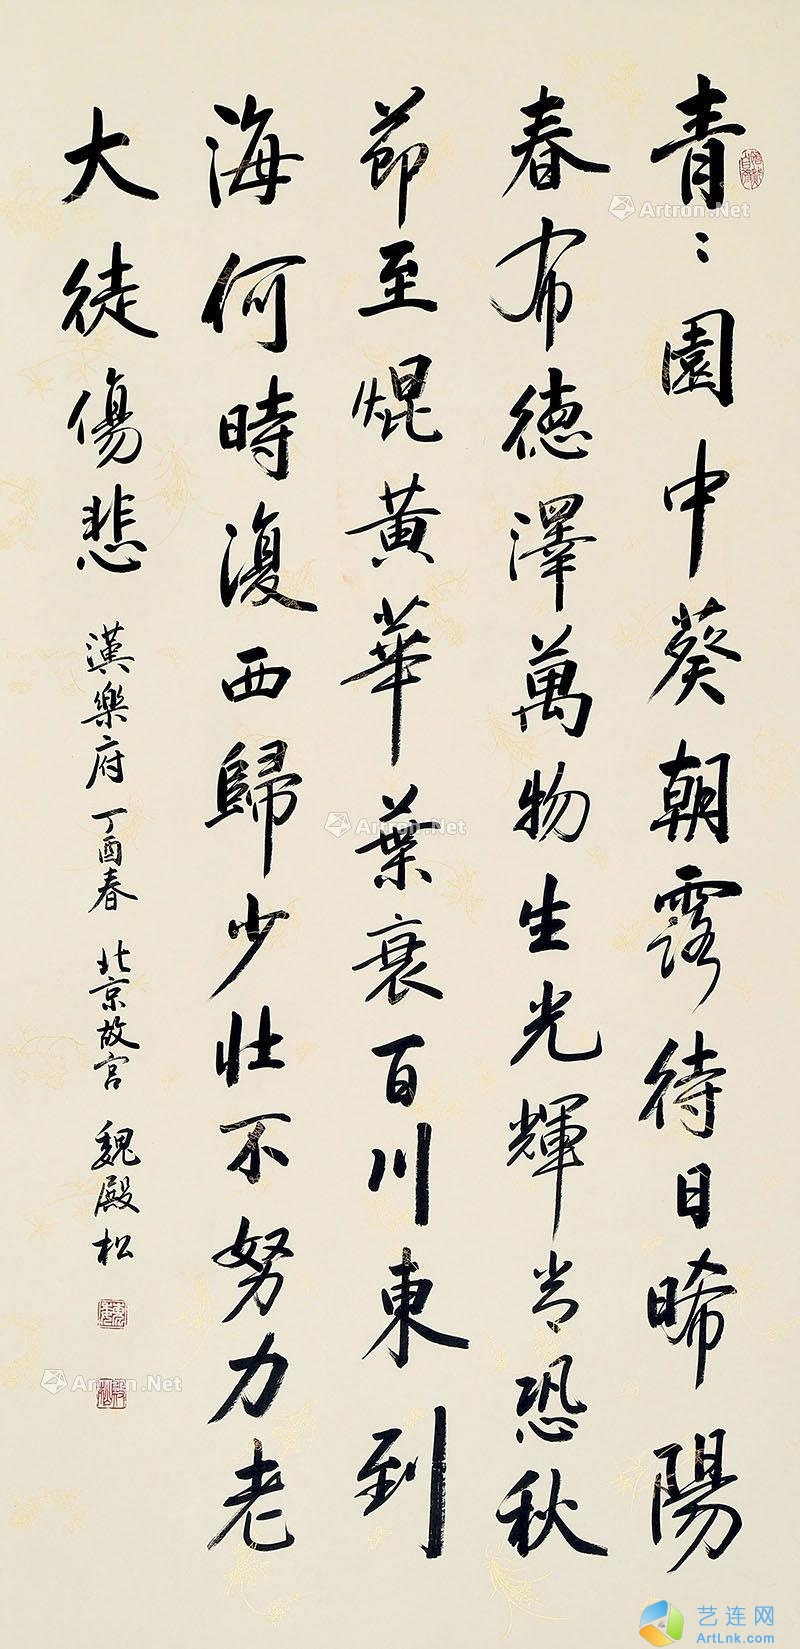 青〻園中葵朝露待日晞陽
春布德澤萬物生光輝常恐秋
節至焜黄華葉衰百川東到
海何時復西歸少壯不努力老
大徒傷悲 漢樂府 丁酉春 北京故宫 魏殿松
Artron.Net
Artron.Net
Artron.Net
艺连网
ArtLnk.com